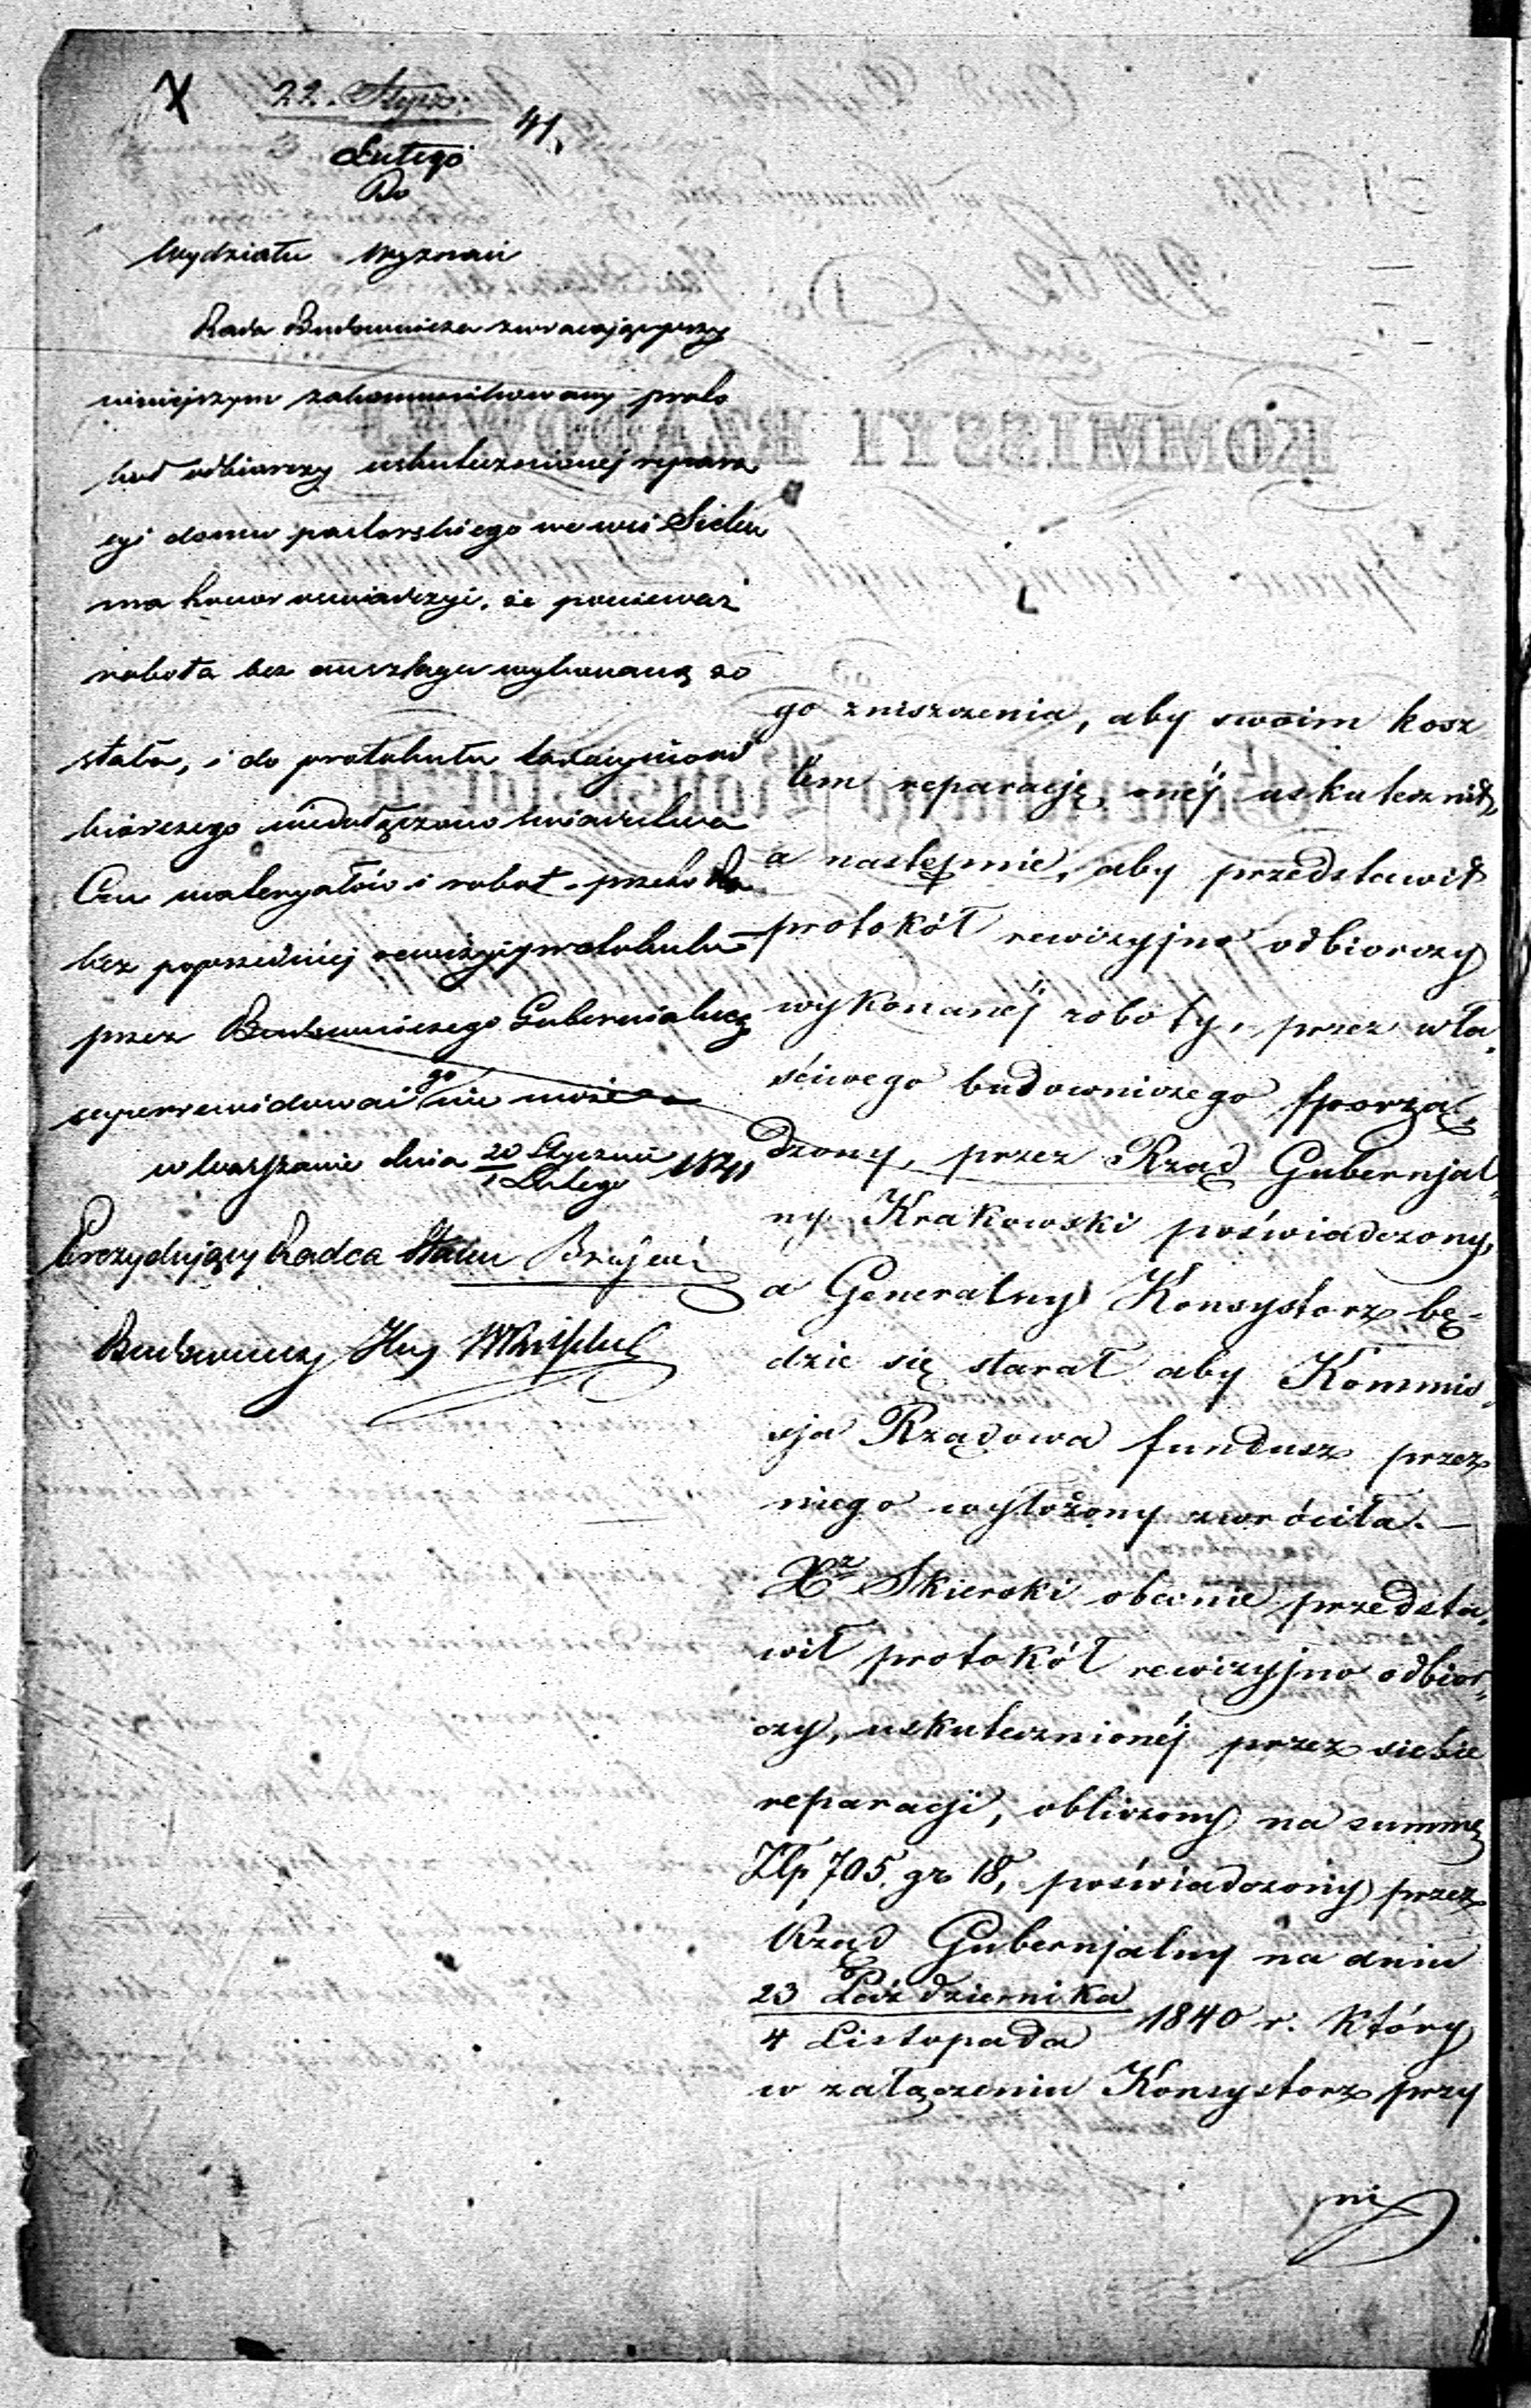 22. Stycz.
Lutego
41.
Do
Wydziału Wyznań
Rada Budownicza zwracając przy
niniejszym zakommunikowany proto
kuł odbiorczy uskutecznionej repara
cyi domu pastorskiego we wsi Sielcu
ma honor oświadczyć, że ponieważ
robota bez anszlagu wykonaną zo
stała, i do protokułu
biorczego niedołączono świadectwa
Cen materyałów i robot. przeto
bez poprzedniej rewizyi protokułu
przez Budowniczego Gubernialnego
superrewidować go nie może
w Warszawie dnia 20 Stycznia / 1 Lutego 1841
Prezydujący Radca Stanu
Budowniczy
go zniszczenia, aby swoim kosz
tem reparację onéj uskutecznił,
a następnie, aby przedstawił
protokół rewizyjno odbiorczy
wykonanéj roboty, przez wła,,
ściwego budowniczego sporzą,,
dzony, przez Rząd Gubernjal,,
ny Krakowski poświadczony,
a Generalny Konsystorz bę-
dzie się starał aby Kommis,,
sja Rządowa fundusz przez
niego wyłożony zwróciła. —
Xz Skierski obecnie przedsta,,
wił protokół rewizyjno odbior,,
czy, uskutecznionéj przez siebie
reparacji, obliczony na summę
Złp 705. gr 18, poświadczony przez
Rząd Gubernjalny na dniu
23 Października
4 Listopada 1840 r. który
w załączeniu Konsystorz przy
ni